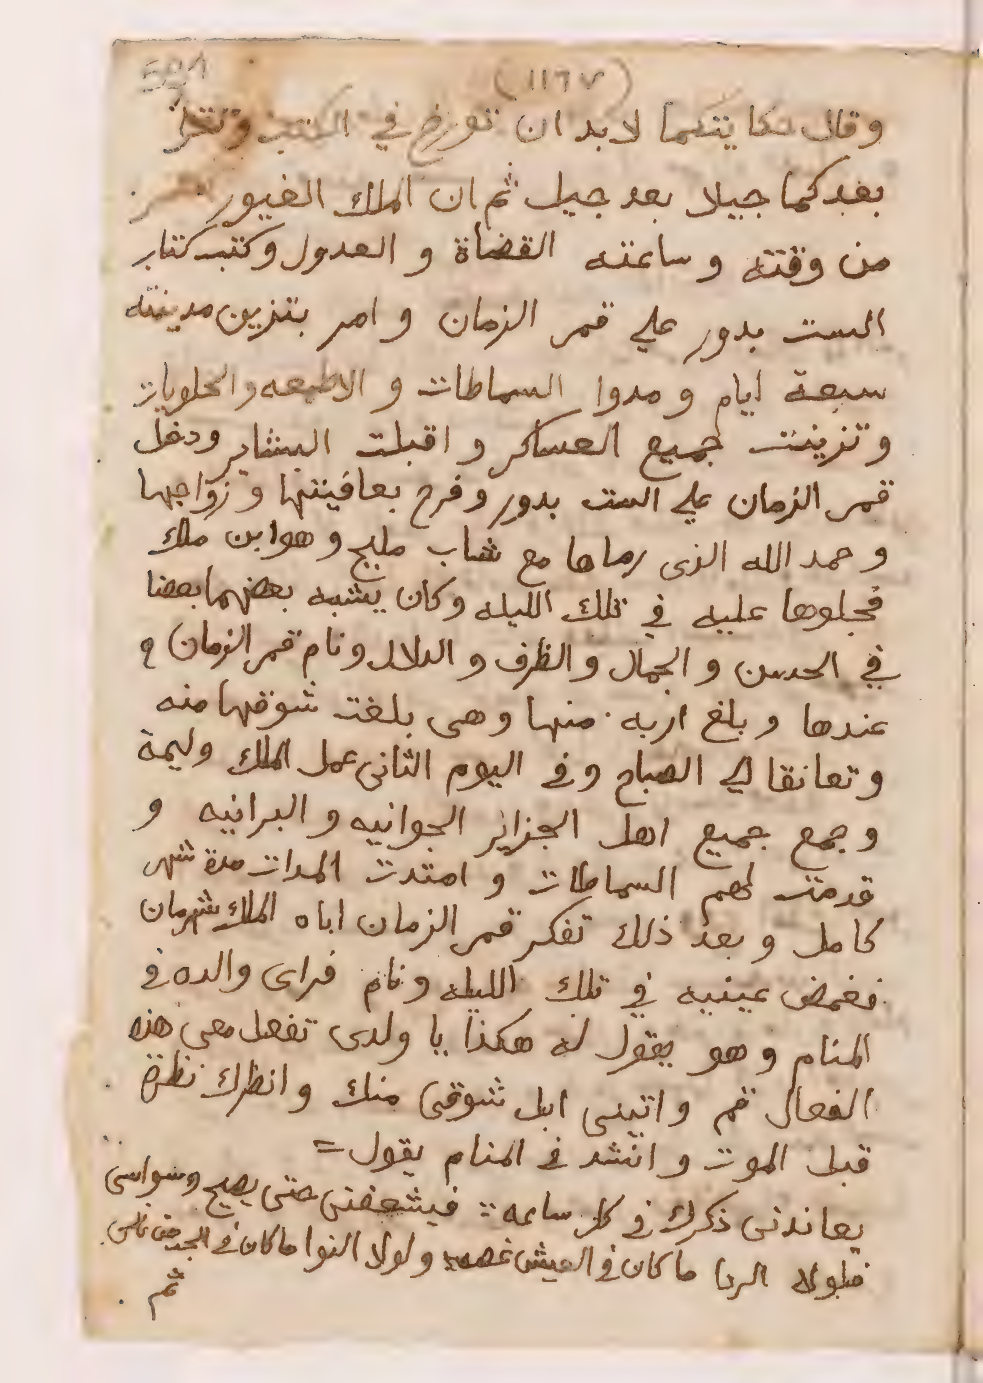 (١١٦٧)
وقال حكايتكما لا بد ان تورخ في الكتب وتقرا
بعدكما جيلا بعد جيل ثم ان الملك الغيور
من وقته وساعته القضاة و العدول وكتب كتاب
الست بدور علي قمر الزمان و امر بتزين مدينته
سبعة ايام و مدوا السماطات و الاطعمه والحلويات
وتزينت جميع العساكر و اقبلت البشاير ودخل
قمر الزمان علي الست بدور وفرح بعافيتها وزواجها
و حمد الله الذى رماها مع شاب مليح وهو ابن ملك
فجلوها عليه في تلك الليله وكان يشبه بعضهما بعضا
في الحسن و الجمال و الظرف و الدلال ونام قمر الزمان
عندها و بلغ اربه منها وهى بلغت شوقها منه
وتعانقا الي الصباح وفى اليوم الثانى عمل الملك وليمة
وجمع جميع اهل الجزاير الجوانيه و البرانيه و
قدمت لهم السماطات و امتدت المدات مدة شهر
كامل و بعد ذلك تفكر قمر الزمان اباه الملك شهرمان
فغمض عينيه في تلك الليله ونام فراى والده فى
المنام وهو يقول له هكذا يا ولدى تفعل معى هذه
الفعال قم واتينى ابل شوقى منك وانظرك نظرة
قبل الموت و انشد فى المنام يقول =
يعاندنى ذكرك فى كل ساعه فيشعفنى حتى يصيح وسواسى
فلولا الرجا ما كان فى العيش غصه ولولا النوا ما كان فى
ثم